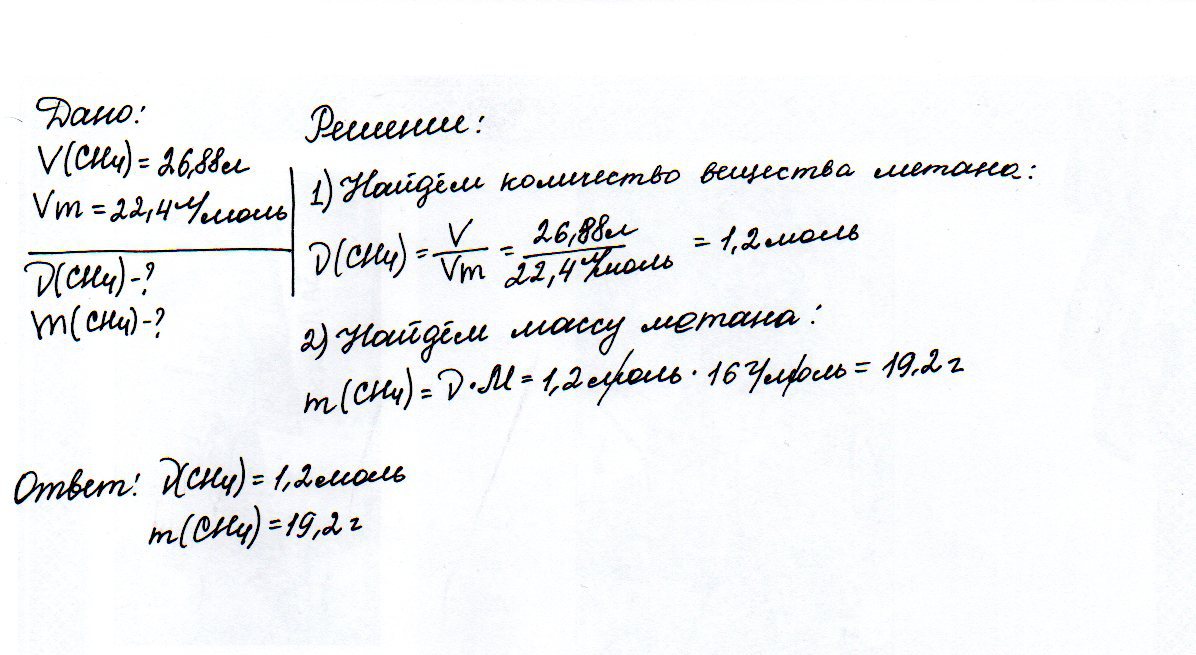 Дано:
V(CH4) = 26,88л
Vm = 22,4 л/моль
ν(CH4) - ?
m(CH4) - ?
Решение:
1) Найдём количество вещества метана:
ν(CH4) = V/Vm = 26,88л/22,4 л/моль = 1,2 моль
2) Найдём массу метана:
m(CH4) = ν · M = 1,2 моль · 16 г/моль = 19,2 г
Ответ: ν(CH4) = 1,2 моль
m(CH4) = 19,2 г